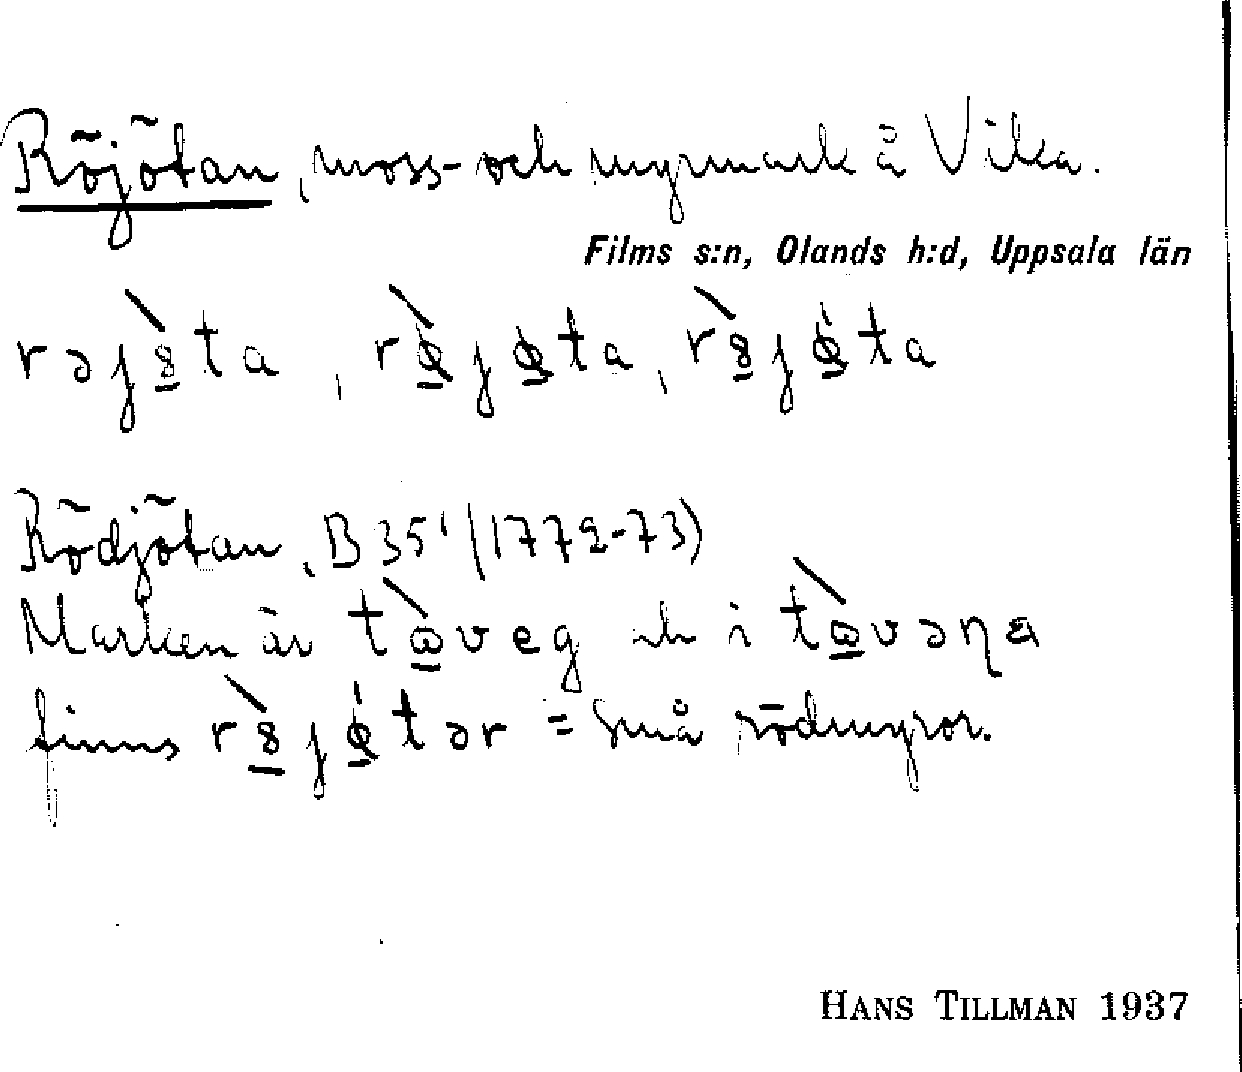 Röjötan, moss- och myrmark å Vika.
Films s:n, Olands h:d, Uppsala län
rəȷ8̲̀ta, rø̲̀ȷø̲ta, r8̲̀ȷǿ̲ta
Rödjötan, B 35' (1772-73)
Marken är tὼ̲veg och i tὼ̲vəηa
finns r8̲̀ȷǿ̲tər = små rödmyror.
HANS TILLMAN 1937